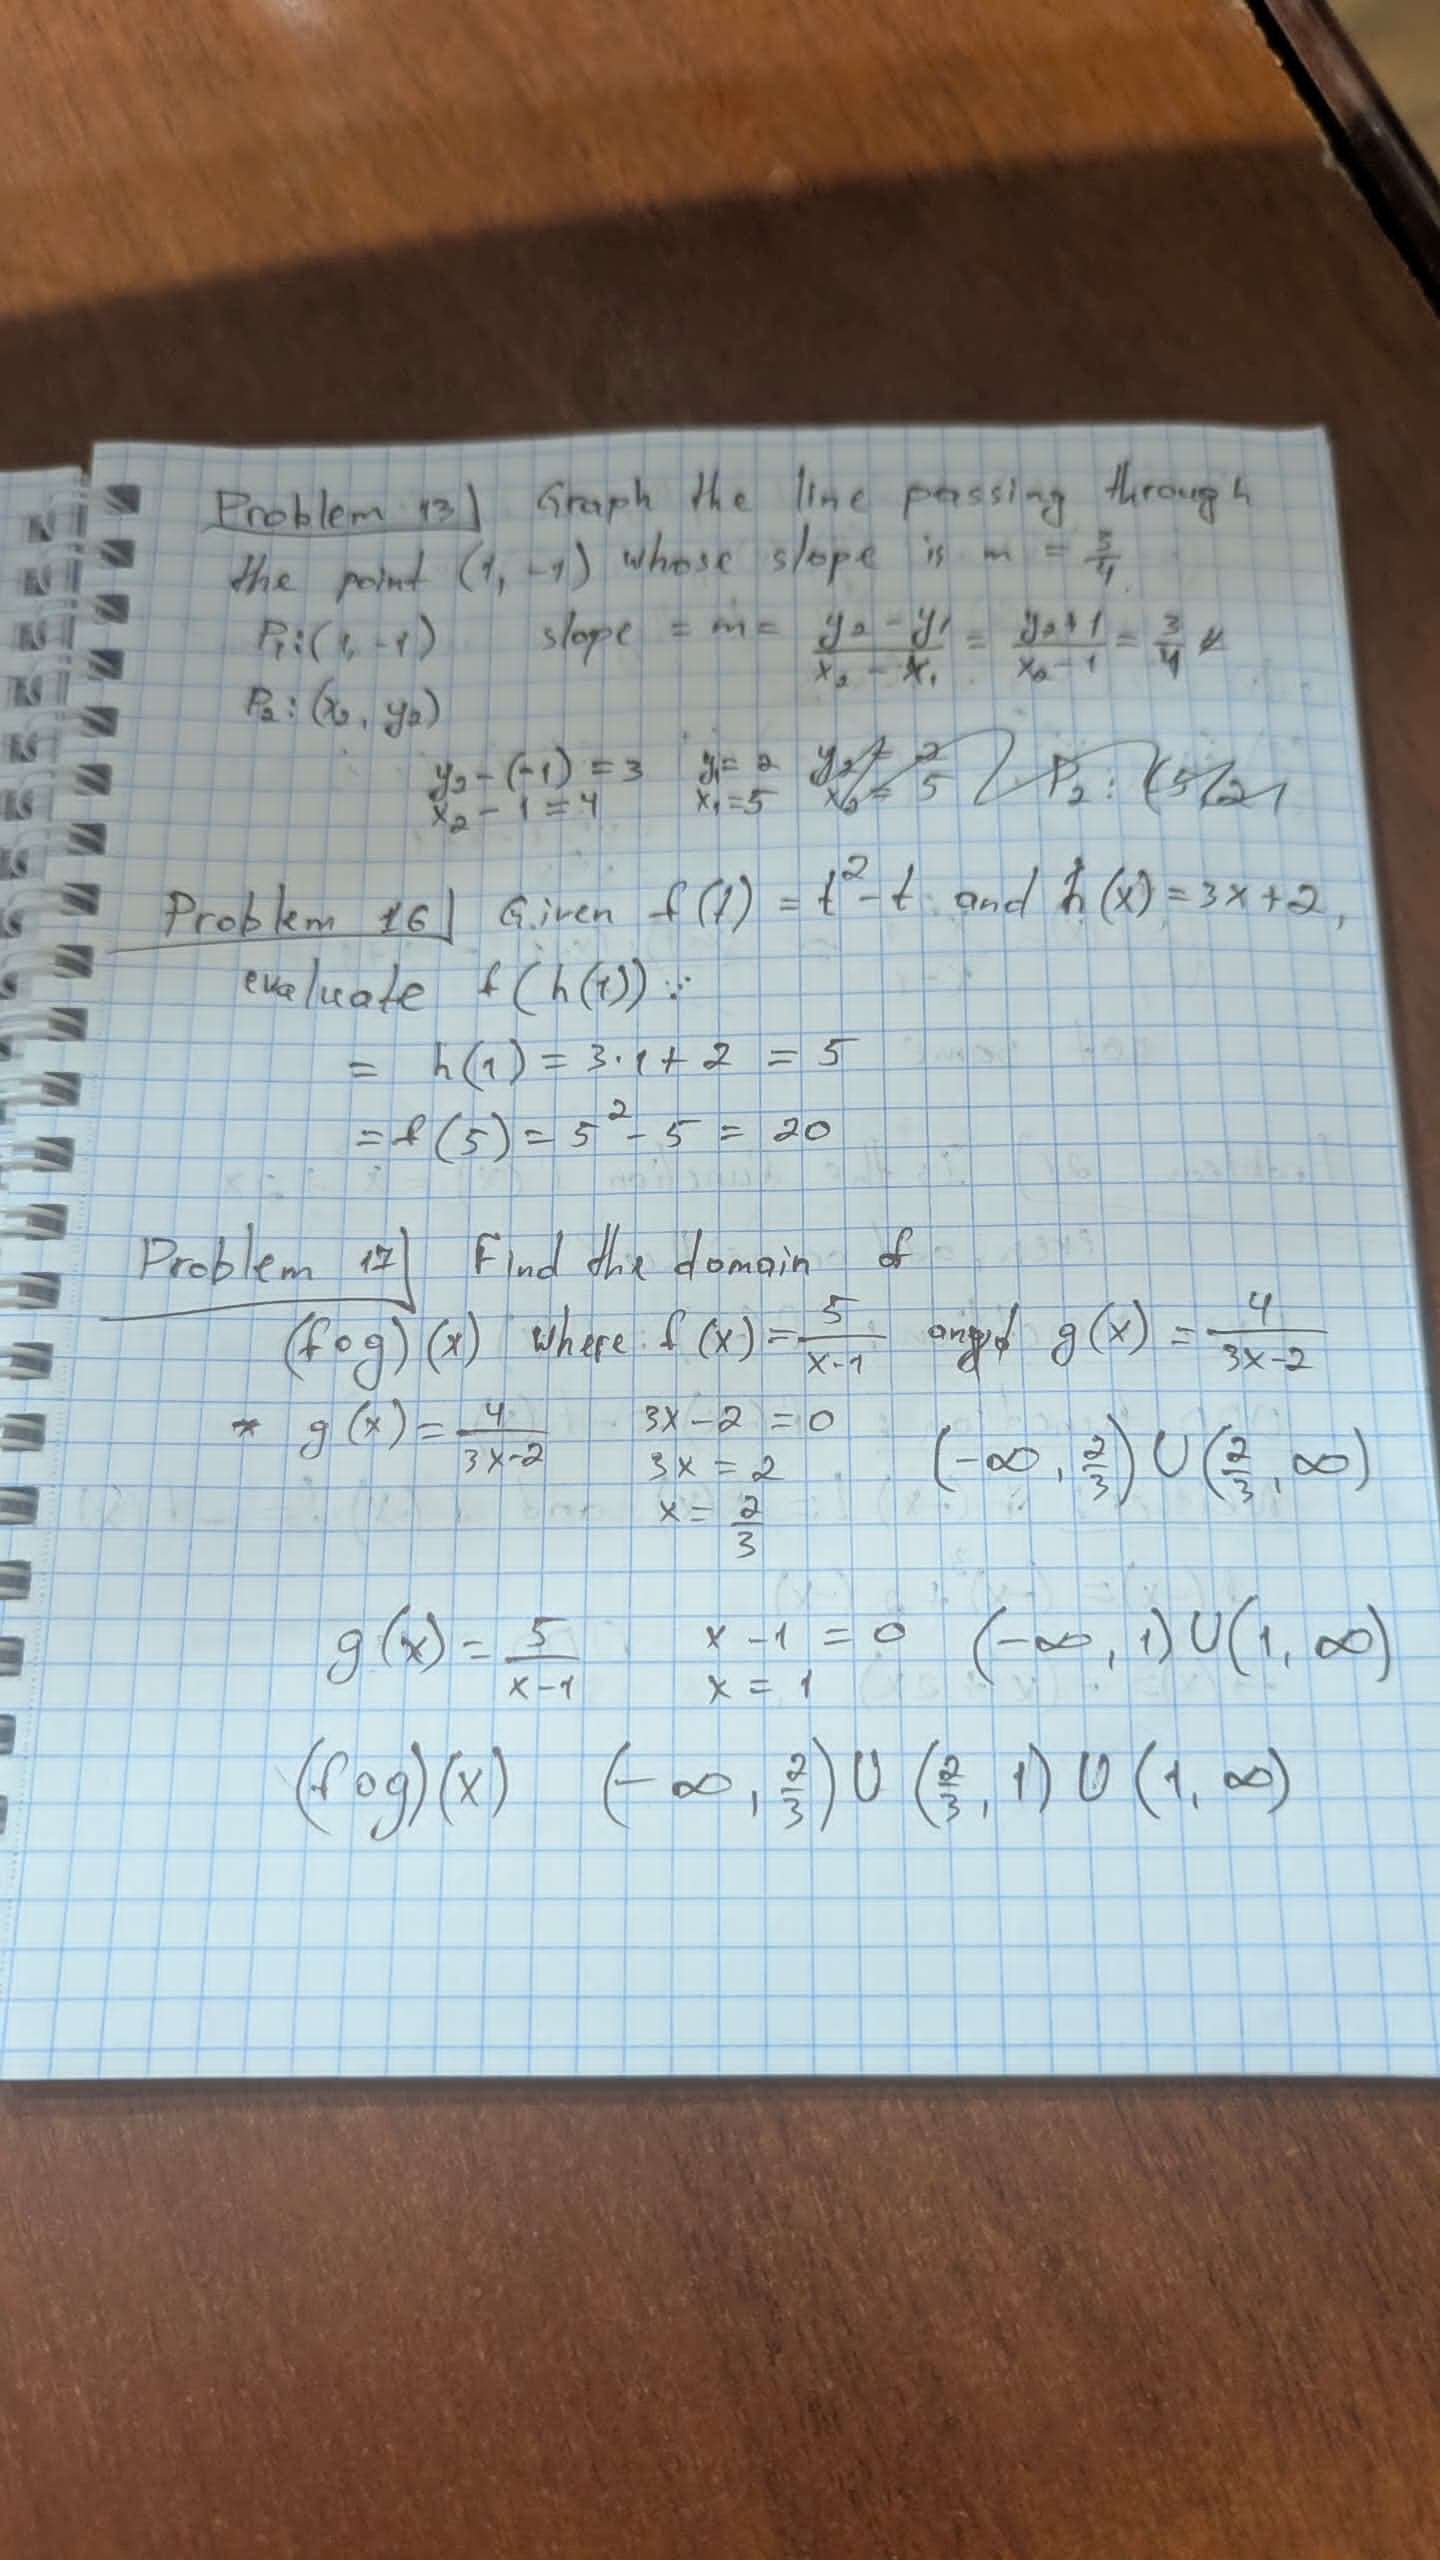 Problem 13) Graph the line passing through
the point (1, -1) whose slope is m = 3/4
P₁:(1, -1) slope = m = (y₂ - y₁)/(x₂ - x₁) = (y₂+1)/(x₂-1) = 3/4
P₂:(x₂, y₂)
y₂-(-1) = 3 y₁= 2 y₂ = 2 P₂: (5, 2)
x₂ - 1 = 4 x₁=5 x₂ = 5
Problem 16) Given f(t) = t²-t and h(x) = 3x+2,
evaluate f(h(1)):
= h(1) = 3·1+2 = 5
= f(5) = 5²-5 = 20
Problem 17) Find the domain of
(fog)(x) where f(x) = 5/(x-1) and g(x) = 4/(3x-2)
* g(x) = 4/(3x-2) 3x-2 = 0 (-∞, 2/3) U (2/3, ∞)
3x = 2
x = 2/3
g(x) = 5/(x-1) x-1 = 0 (-∞, 1) U (1, ∞)
x = 1
(fog)(x) (-∞, 2/3) U (2/3, 1) U (1, ∞)